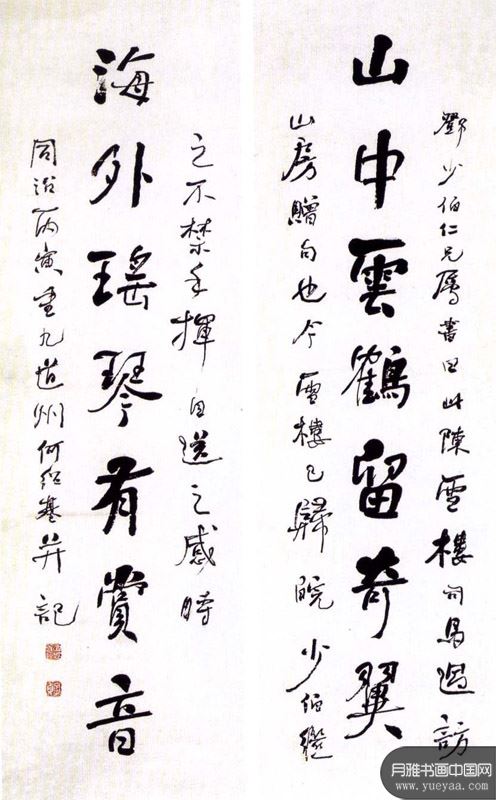 鄧少伯仁兄屬書曰此陳雪樓司馬過訪
山中雲鶴留奇翼
山房贈句也今雪樓已歸皖少伯
之不禁手揮目送之感時
海外瑤琴有賞音
同治丙寅重九道州何紹基并記
月雅书画中国网
www.yueyaa.com